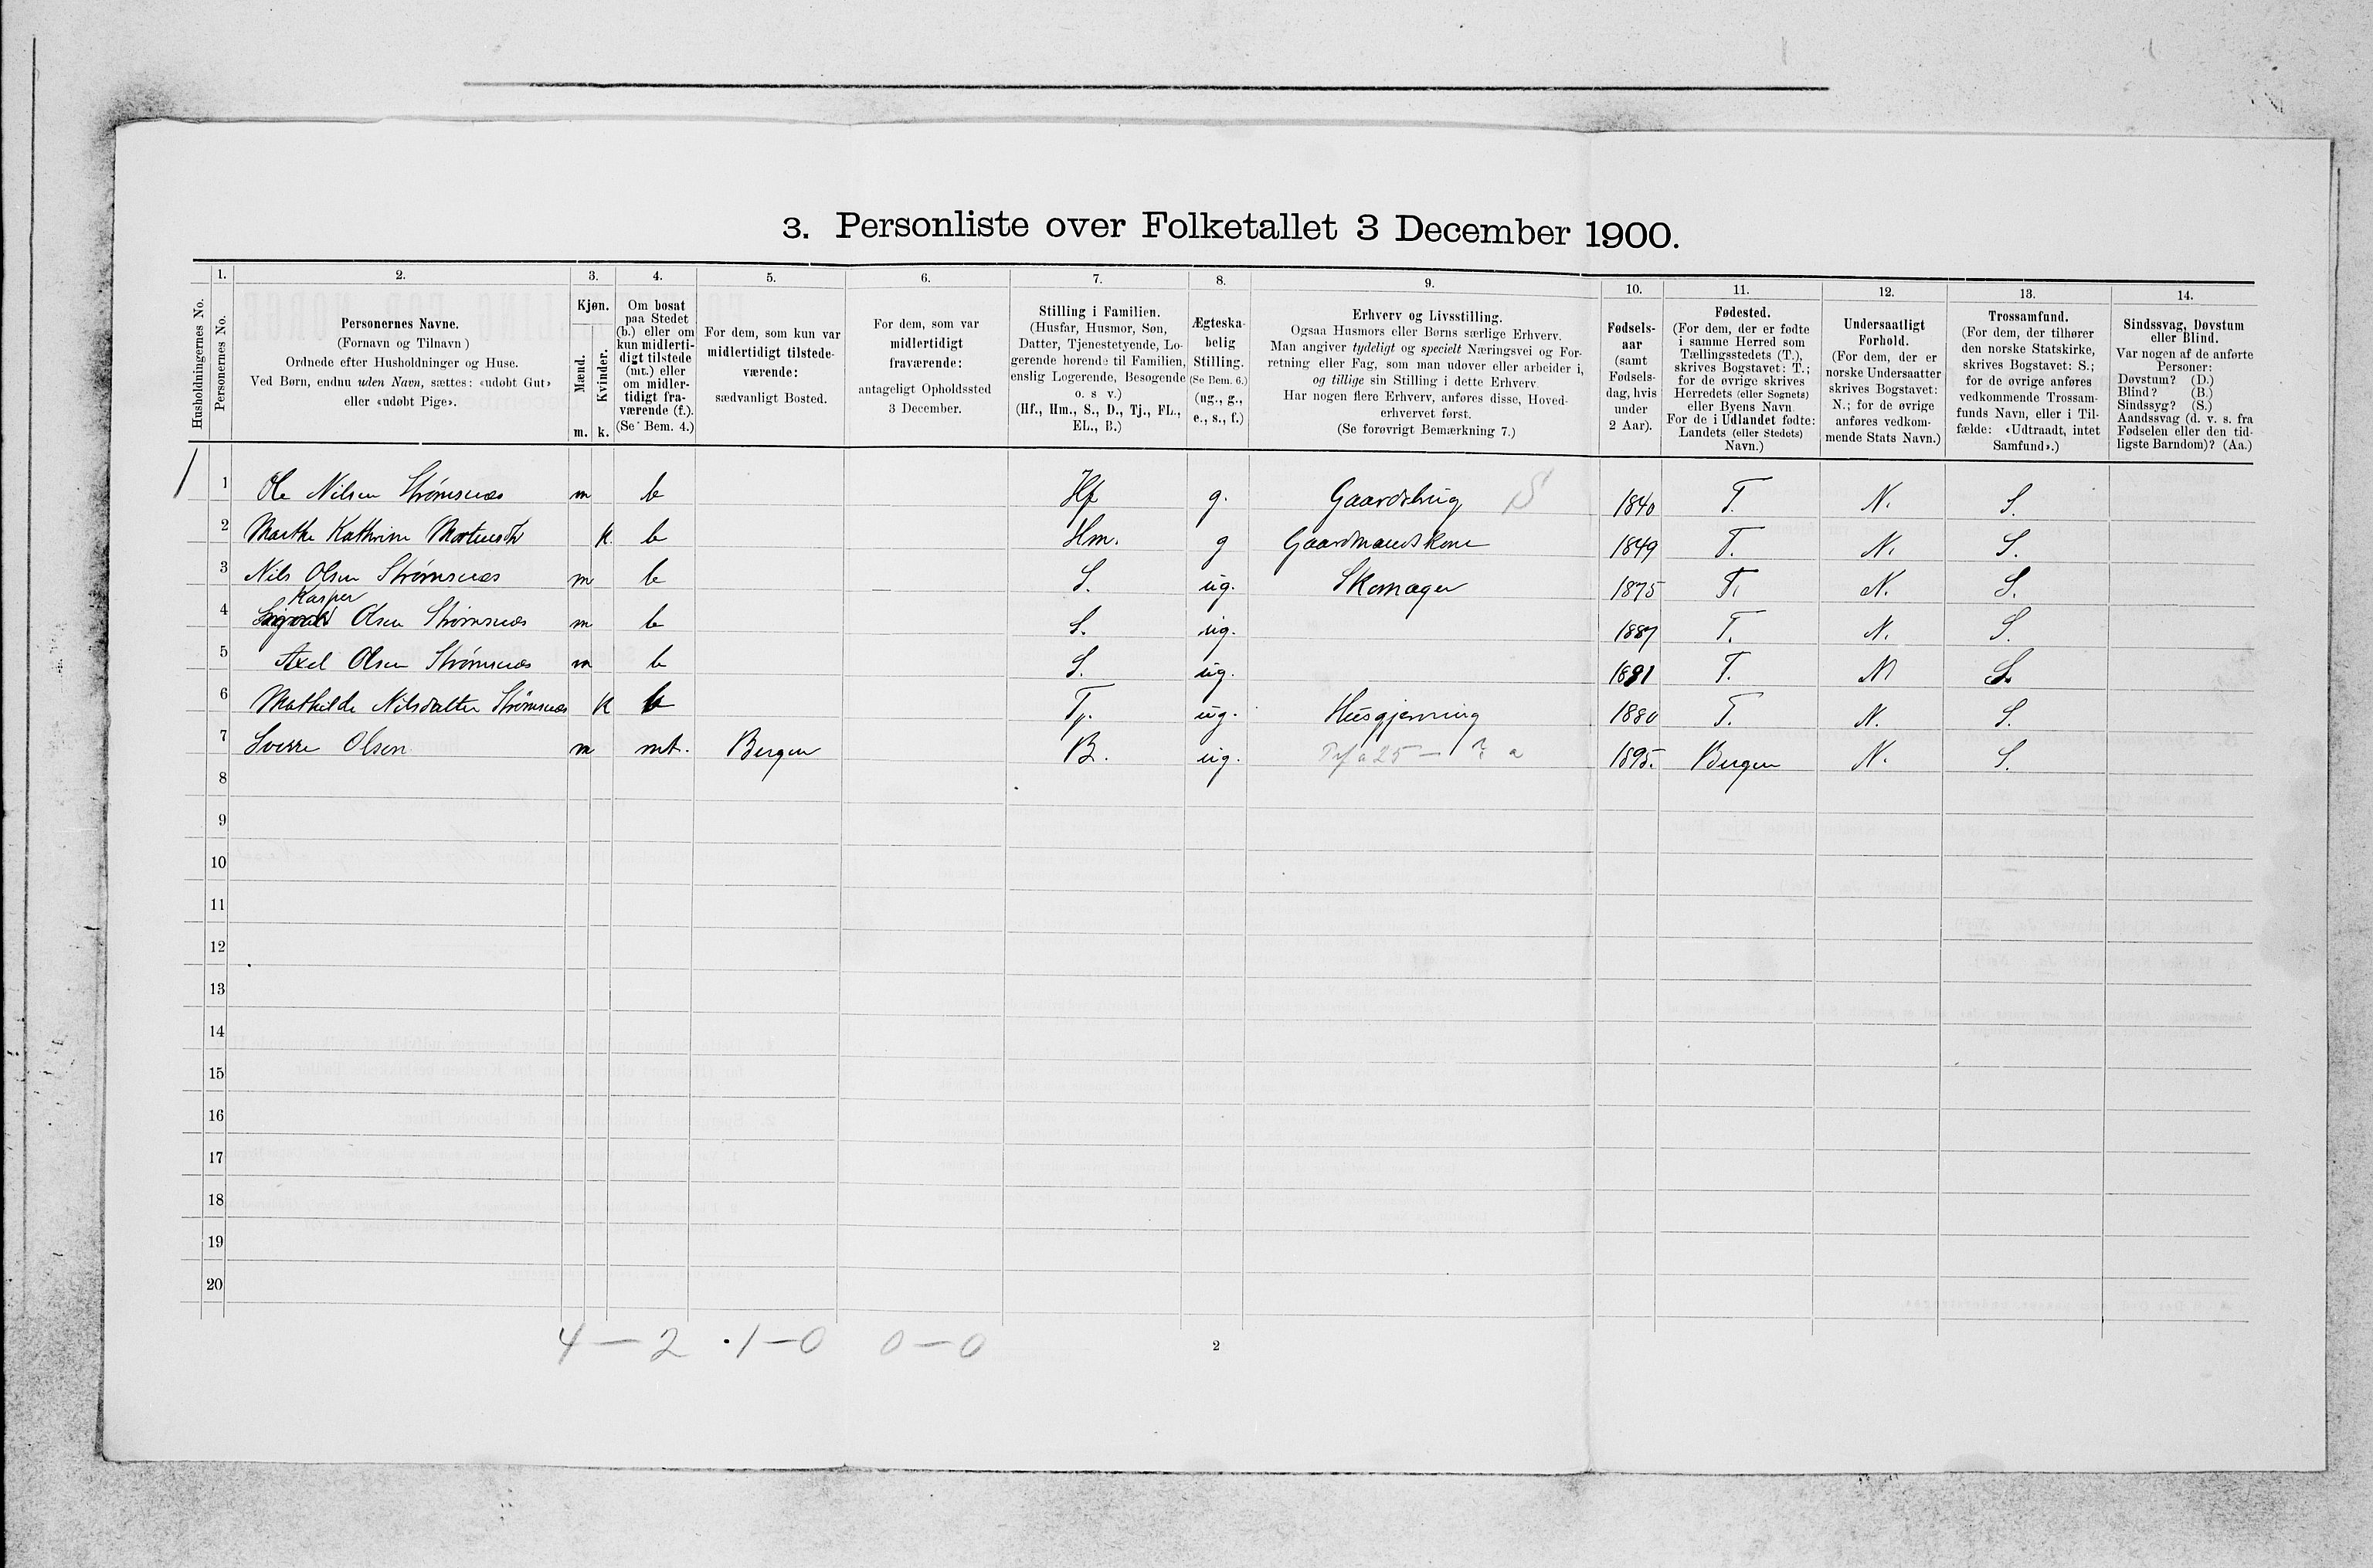 3. Personliste over Folketallet 3 December 1900.
Husholdningernes No.
1.
Personernes No.
2.
Personernes Navne.
(Fornavn og Tilnavn)
Ordnede efter Husholdninger og Huse.
Ved Børn, endnu uden Navn, sættes: «udøbt Gut»
eller «udøbt Pige».
3.
Kjøn.
Mænd.
Kvinder.
m. k.
4.
Om bosat
paa Stedet
(b.) eller om
kun midlerti-
digt tilstede
(mt.) eller
om midler-
tidigt fra-
værende (f.).
(Se Bem. 4.)
5.
For dem, som kun var
midlertidigt tilstede-
værende:
sædvanligt Bosted.
6.
For dem, som var
midlertidigt
fraværende:
antageligt Opholdssted
3 December.
7.
Stilling i Familien.
(Husfar, Husmor, Søn,
Datter, Tjenestetyende, Lo-
gerende hørende til Familien,
enslig Logerende, Besøgende
o. s. v.)
(Hf., Hm., S., D., Tj., FL.,
EL., B.)
8.
Ægteska-
belig
Stilling.
(Se Bem. 6.)
(ug., g.,
e., s., f.)
9.
Erhverv og Livsstilling.
Ogsaa Husmors eller Børns særlige Erhverv.
Man angiver tydeligt og specielt Næringsvei og For-
retning eller Fag, som man udøver eller arbeider i,
og tillige sin Stilling i dette Erhverv.
Har nogen flere Erhverv, anføres disse, Hoved-
erhvervet først.
(Se forøvrigt Bemærkning 7.)
10.
Fødsels-
aar
(samt
Fødsels-
dag, hvis
under
2 Aar).
11.
Fødested.
(For dem, der er fødte
i samme Herred som
Tællingsstedets (T.),
skrives Bogstavet: T.;
for de øvrige skrives
Herredets (eller Sognets)
eller Byens Navn.
For de i Udlandet fødte:
Landets (eller Stedets)
Navn.)
12.
Undersaatligt
Forhold.
(For dem, der er
norske Undersaatter
skrives Bogstavet:
N.; for de øvrige
anføres vedkom-
mende Stats Navn.)
13.
Trossamfund.
(For dem, der tilhører
den norske Statskirke,
skrives Bogstavet: S.;
for de øvrige anføres
vedkommende Trossam-
funds Navn, eller i Til-
fælde: «Udtraadt, intet
Samfund».)
14.
Sindssvag, Døvstum
eller Blind.
Var nogen af de anførte
Personer:
Døvstum? (D.)
Blind? (B.)
Sindssyg? (S.)
Aandssvag (d. v. s. fra
Fødselen eller den tid-
ligste Barndom)? (Aa.)
1 1 Ole Nilsen Strømsnæs m b Hf g. Gaardsbrug S 1840 T. N. S.
2 Marthe Kathrine Mortensdt k b Hm. g Gaardmandskone 1849 T. N. S.
3 Nils Olsen Strømsnæs m b S. ug. Skomager 1875 T. N. S.
Kasper
4 Olsen Strømsnæs m b S. ug. 1887 T. N. S.
5 Axel Olsen Strømsnæs m b S. ug. 1891 T. N S.
6 Mathilde Nilsdatter Strømsnæs k b Tj. ug. Husgjerning 1880 T. N. S.
7 Sverre Olsen m mt. Bergen B. ug. 1895. Bergen N. S.
8
9
10
11
12
13
14
15
16
17
18
19
20
4 — 2 · 1 — 0 0 — 0
2